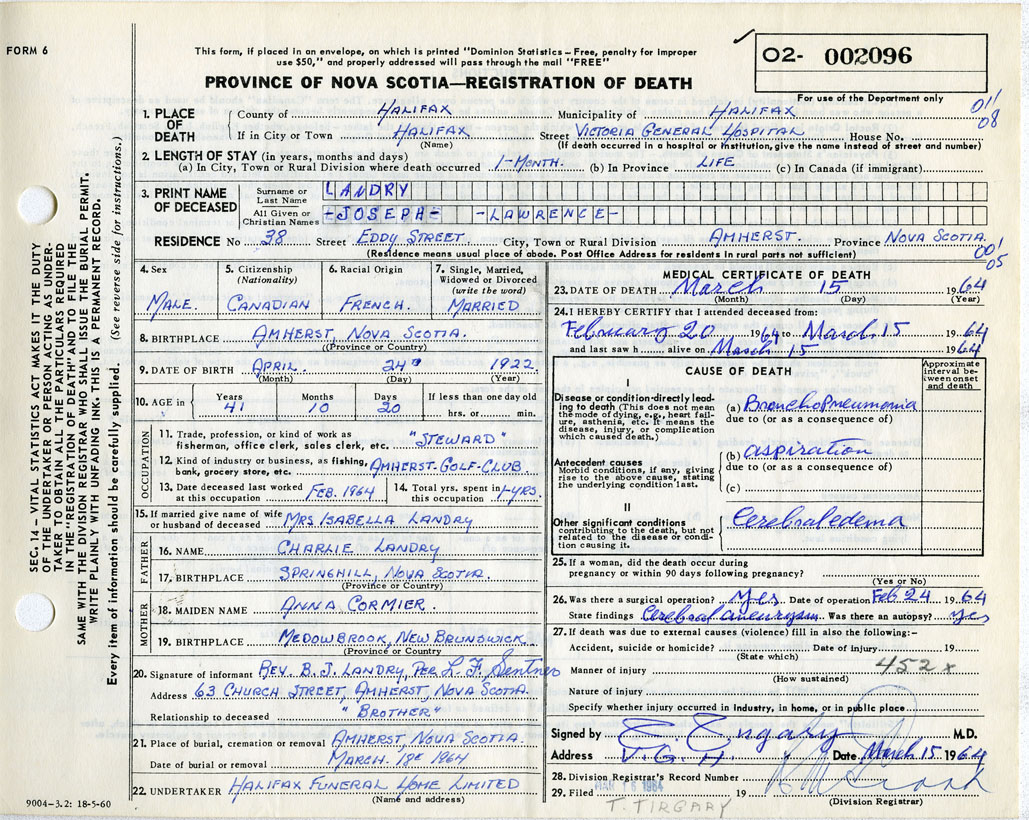 FORM 6
This form, if placed in an envelope, on which is printed "Dominion Statistics – Free, penalty for improper
use $50," and properly addressed will pass through the mail "FREE"
PROVINCE OF NOVA SCOTIA—REGISTRATION OF DEATH
O2- 002096
For use of the Department only
011
08
1. PLACE OF DEATH
County of HALIFAX Municipality of HALIFAX
If in City or Town HALIFAX Street VICTORIA GENERAL HOSPITAL House No.
(Name) (If death occurred in a hospital or institution, give the name instead of street and number)
2. LENGTH OF STAY (in years, months and days)
(a) In City, Town or Rural Division where death occurred 1-MONTH. (b) In Province LIFE (c) In Canada (if immigrant)
3. PRINT NAME OF DECEASED
Surname or Last Name LANDRY
All Given or Christian Names -JOSEPH- -LAWRENCE-
RESIDENCE No 38 Street EDDY STREET City, Town or Rural Division AMHERST. Province NOVA SCOTIA.
(Residence means usual place of abode. Post Office Address for residents in rural parts not sufficient)
001
05
4. Sex 5. Citizenship (Nationality) 6. Racial Origin 7. Single, Married, Widowed or Divorced (write the word)
MALE. CANADIAN FRENCH. MARRIED
8. BIRTHPLACE AMHERST, NOVA SCOTIA.
(Province or Country)
9. DATE OF BIRTH APRIL 24 1922
(Month) (Day) (Year)
10. AGE in Years Months Days If less than one day old
41 10 20 hrs. or min.
OCCUPATION
11. Trade, profession, or kind of work as
fisherman, office clerk, sales clerk, etc. "STEWARD"
12. Kind of industry or business, as fishing,
bank, grocery store, etc. AMHERST GOLF-CLUB
13. Date deceased last worked at this occupation FEB. 1964 14. Total yrs. spent in this occupation 1-YRS.
15. If married give name of wife
or husband of deceased MRS ISABELLA LANDRY
FATHER
16. NAME CHARLIE LANDRY
17. BIRTHPLACE SPRINGHILL, NOVA SCOTIA.
(Province or Country)
MOTHER
18. MAIDEN NAME ANNA CORMIER.
19. BIRTHPLACE MEDOWBROOK, NEW BRUNSWICK
(Province or Country
20. Signature of informant REV. B. J. LANDRY, PER L. F. Sentner
Address 63 CHURCH STREET, AMHERST, NOVA SCOTIA.
Relationship to deceased "BROTHER"
21. Place of burial, cremation or removal AMHERST, NOVA SCOTIA.
Date of burial or removal MARCH. 18 1964
22. UNDERTAKER HALIFAX FUNERAL HOME LIMITED
(Name and address)
MEDICAL CERTIFICATE OF DEATH
23. DATE OF DEATH March 15 1964
(Month) (Day) (Year)
24. I HEREBY CERTIFY that I attended deceased from:
February 20 1964 to March 15 1964
and last saw h alive on March 15 1964
CAUSE OF DEATH
Approximate interval between onset and death
I
Disease or condition directly leading to death (This does not mean the mode of dying, e.g., heart failure, asthenia, etc. It means the disease, injury, or complication which caused death.)
(a) BronchoPneumonia
due to (or as a consequence of)
Antecedent causes
Morbid conditions, if any, giving rise to the above cause, stating the underlying condition last.
(b) aspiration
due to (or as a consequence of)
(c)
II
Other significant conditions
contributing to the death, but not related to the disease or condition causing it.
Cerebral edema
25. If a woman, did the death occur during
pregnancy or within 90 days following pregnancy?
(Yes or No)
26. Was there a surgical operation? yes Date of operation Feb 24 1964
State findings Cerebral aneurysm Was there an autopsy? yes
27. If death was due to external causes (violence) fill in also the following:-
Accident, suicide or homicide? Date of injury 19
(State which)
Manner of injury 452x
(How sustained)
Nature of injury
Specify whether injury occurred in industry, in home, or in public place
Signed by T. Tirgary M.D.
Address V.G.H. Date March 15 1964
28. Division Registrar's Record Number
29. Filed MAR 16 1964 19
(Division Registrar)
T. TIRGARY
SEC. 14 – VITAL STATISTICS ACT MAKES IT THE DUTY
OF THE UNDERTAKER OR PERSON ACTING AS UNDER-
TAKER TO OBTAIN ALL THE PARTICULARS REQUIRED
IN THE "REGISTRATION OF DEATH" AND TO FILE THE
SAME WITH THE DIVISION REGISTRAR WHO SHALL ISSUE THE BURIAL PERMIT.
WRITE PLAINLY WITH UNFADING INK. THIS IS A PERMANENT RECORD.
Every item of information should be carefully supplied. (See reverse side for instructions.)
9004-3.2: 18-5-60